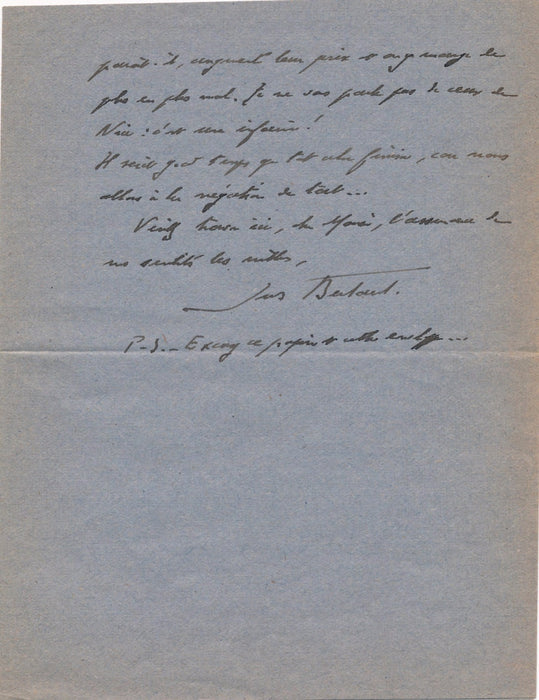 paraît-il, augmenté leur prix et on y mange de
plus en plus mal. Je ne vous parle pas de ceux de
Nice : c'est une infamie !
Il serait grand temps que tout cela finisse, car nous
allons à la négation de tout...
Veuillez trouver ici, cher Monsieur, l'assurance de
mes sentiments les meilleurs,
P-S. - Excusez ce papier et cette enveloppe...